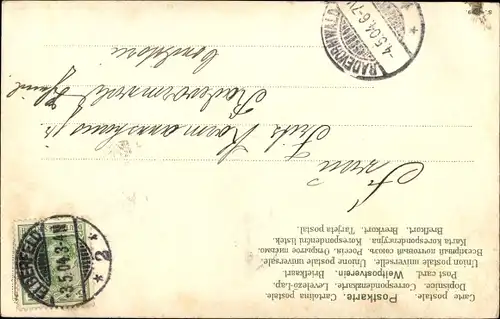 Carte postale. Postkarte. Cartolina postale.
Dopisnice. Correspondenzkarte. Levelező-Lap.
Post card. Weltpostverein. Briefkaart.
Union postale universelle. Unione postale universale.
Всемірный почтовый союзъ. Россія. Открытое письмо.
Karta korespondencyjna. Korespondenční listek.
Brefkort. Brevkort. Tarjeta postal.
Frau
Fritz
Radevormwald
Conditorei
ELBERFELD
3.5.04.3-4N
* 2 *
RADEVORMWALD
4.5.04.6-7V